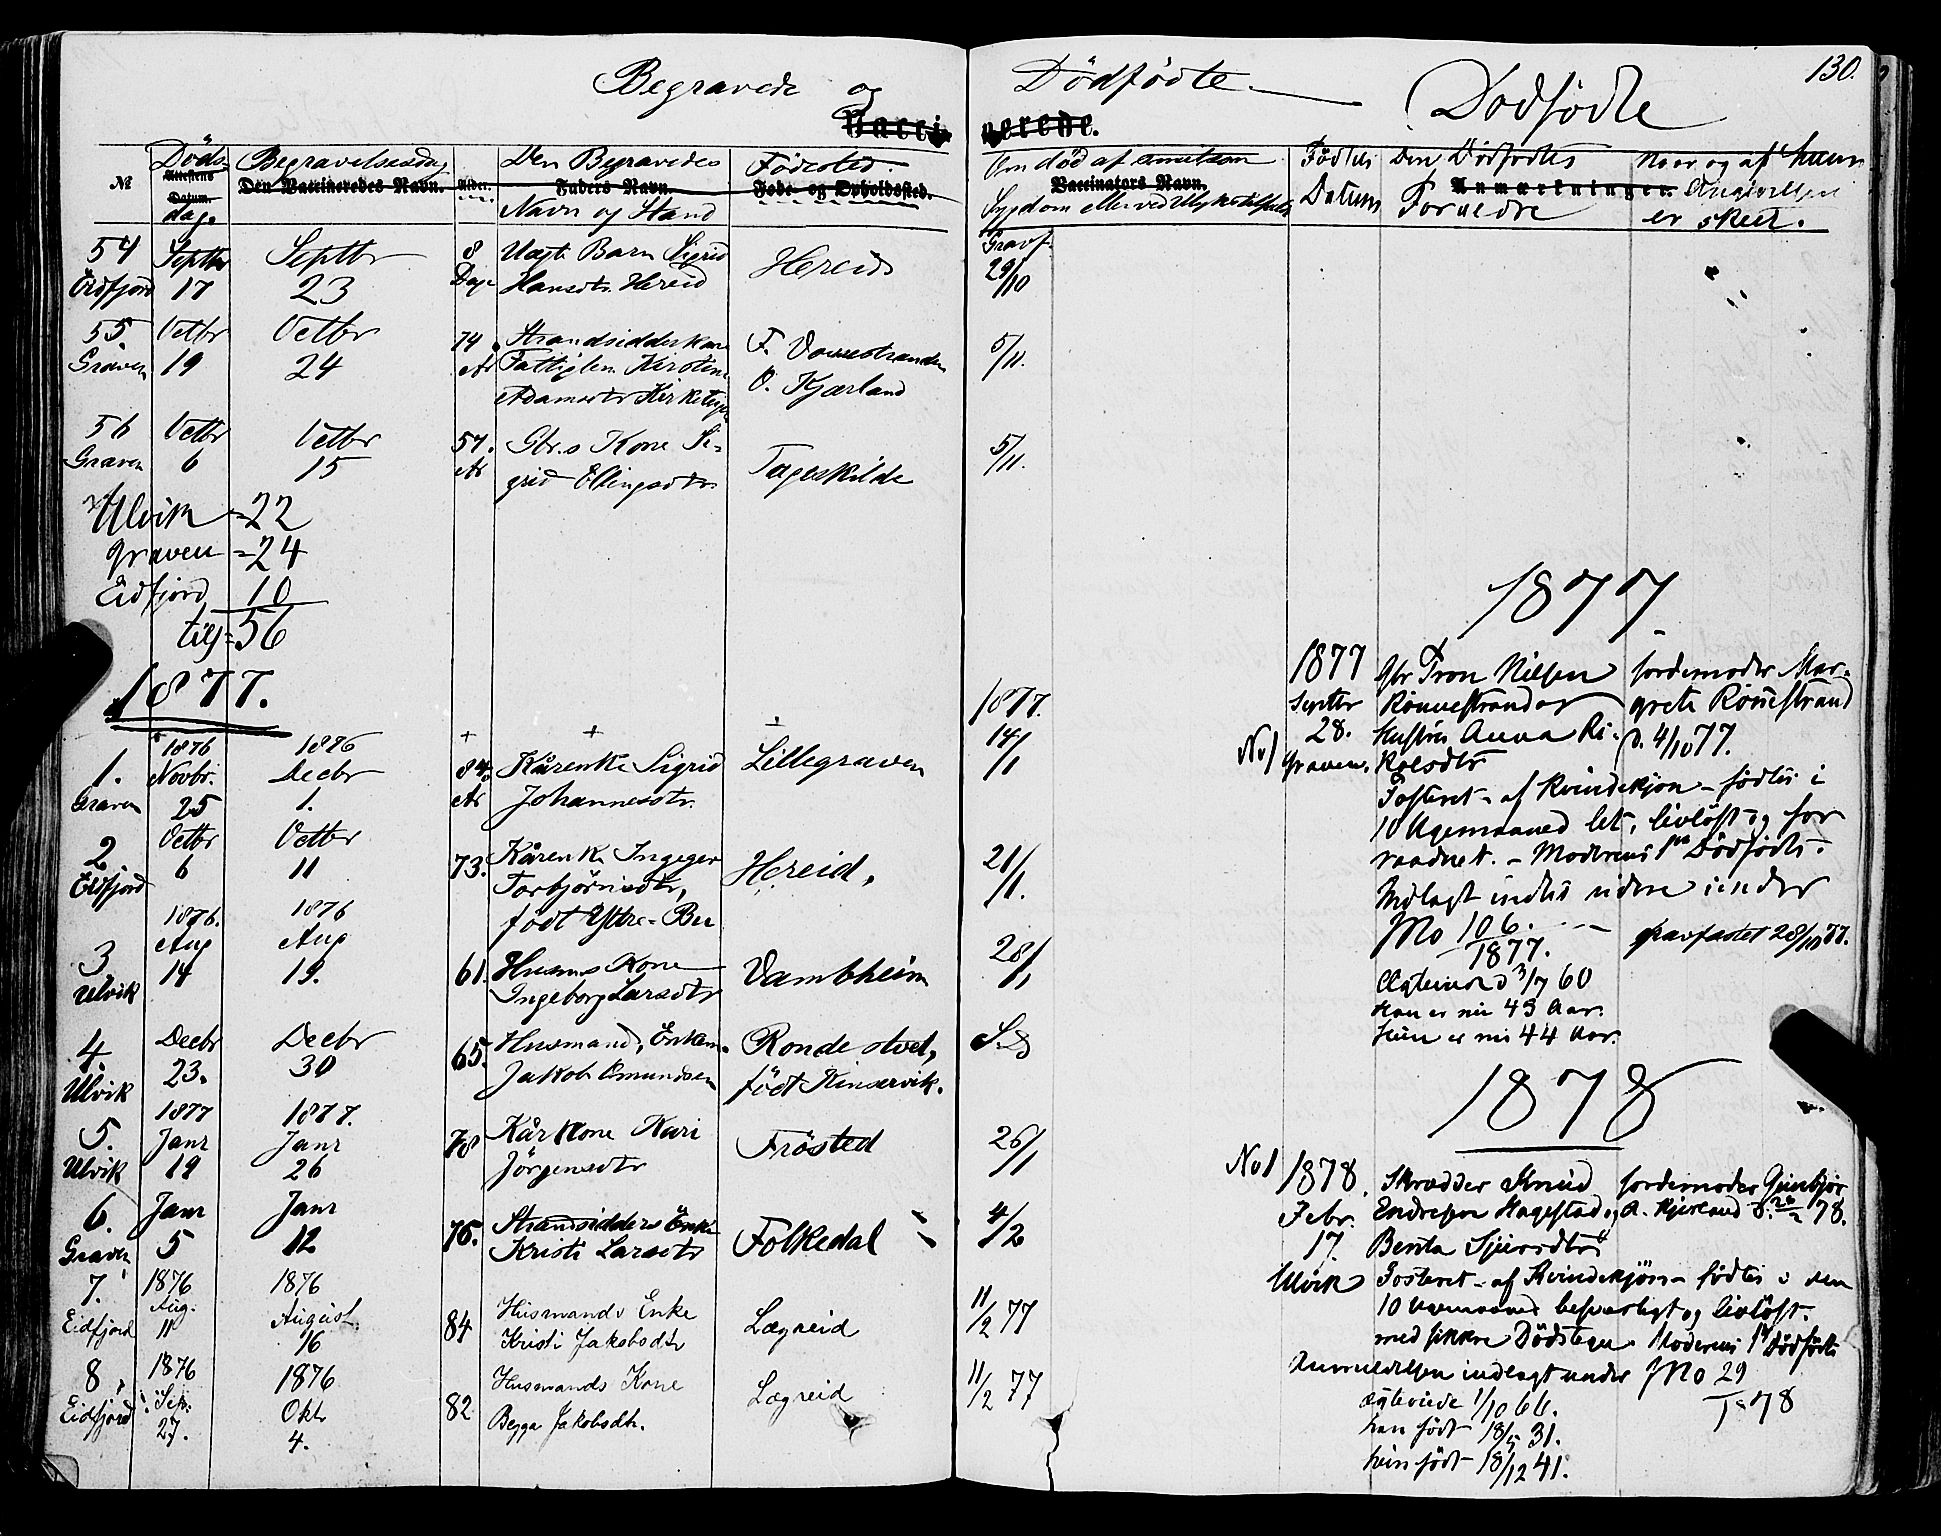 Begravede og Dödfödte Dodfödte 130.
Vaccinerede.
Döds- Begravelsesdag Den Begravedes Födested.
№ Attestens Den Vaccineredes Navn. Alder. Faders Navn. Føde- og Opholdssted.
Datum. dag. Navn og Stand
Om död af smitsom Födsels Den Dödfödtes Naar og af hvem
Vaccinators Navn. Anmærkninger.
Sygdom eller ved Datum Foraeldre Anmeldelsen er skeet.
54 Septbr Septbr 8 Uægt. Barn Sigrid Hereid Gravf.
Eidfjord 17 23 Dage Hansdtr. Hereid 29/10
55. Octbr Octbr 74. Strandsidderkone F. 5/11.
Graven 19 24 Ar Fattiglem Kirstine O. Kjærland
Adamsdtr
56 Octbr Octbr 57. Gbr.s Kone Si- 5/11.
Graven 6 15 Ar grid Ellingsdtr. Tageskilde
Ulvik =22
Graven =24
Eidfjord 10
tils=56
1877.
1877.
1876 1876
1. Novbr. Decbr 84. Kårenke Sigrid Lillegraven 14/1
Graven 25 1. Ar Johannesdtr.
2 Octbr Octbr 73. Kårenk. Ingeger Hereid, 21/1.
Eidfjord 6 11 Torbjörnsdtr,
födt Yttre-Bu
1876. 1876
3 Aug Aug 61. Husms Kone Vambheim 28/1
Ulvik 14 19. Ingeborg Larsdtr
4. Decbr Decbr 65. Husmand, Enkem. Rondestvet, S.D
Ulvik 23. 30 Jakob Omundsen födt Kinservik.
1877 1877.
5. Janr Janr 78 Kår Kone Kari Frösted 26/1
Ulvik 19 26 Jörgensdtr
6. Janr Janr 75. Strandsidders Enke Folkedal 4/2
Graven 5 12 Kristi Larsdtr
7. 1876 1876
Aug. August 84 Husmands Enke Lægreid 11/2 77
Eidfjord 11 16 Kristi Jakobsdtr
8. 1876 1876 Husmands Kone Lægreid 11/2 77
Eidfjord Sep. Okt 82 Begga Jakobsdtr.
27. 4.
1877
1877 Gbr Tron Nilsen Jordemoder Mar-
Septbr Rönnestrand og grete Rönnestrand
No 1 28. Hustru Anna Ri- d. 4/10 77.
Graven. Roesdtr
Fosteret - af Kvindekjön - födtes i
10 Ugemaaned let, livlöst og for-
raadnet. - Moderens 1ste Dödfödte.
Indlagt
No 106. 1877. gravfæstet 28/10 77.
3/7 60
Han er nu 43 Aar.
Hun er nu 44 Aar.
1878
No 1 1878. Skrædder Knud Jordemoder
Febr. Endresen Hagestad og A. Kjerland 78.
17. Benta Sjursdtr
Ulvik Fosteret - af Kvindekjön - födtes i den
10 Ugemaaned og livlöst.
med sikkre Dödstegn. Moderens 1ste Dödfödte
Anmeldelsen indlagt under No 29
ægteviede 1/10 66. 78
han födt 18/5 31.
hun födt 18/12 41.